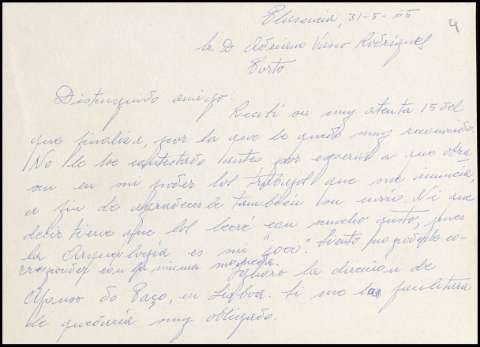 Plasencia, 31-5-55
4
Sr. D. Adriano Vasco Rodrigues
Porto
Distinguido amigo:
Recibí su muy atenta 15 del
que finaliza, por la que le quedo muy reconocido.
No le he contestado antes por esperar a que obra
en mi poder los trabajos que me anuncia,
a fin de agradecerle también su envío. Ni que
decir tiene que los leeré con mucho gusto, pues
la Arqueología es mi "coco". Siento no poder co-
rresponder con la misma moneda.
Quiero la dirección de
Afonso do Paço, en Lisboa. Si me la facilitara
le quedaría muy obligado.